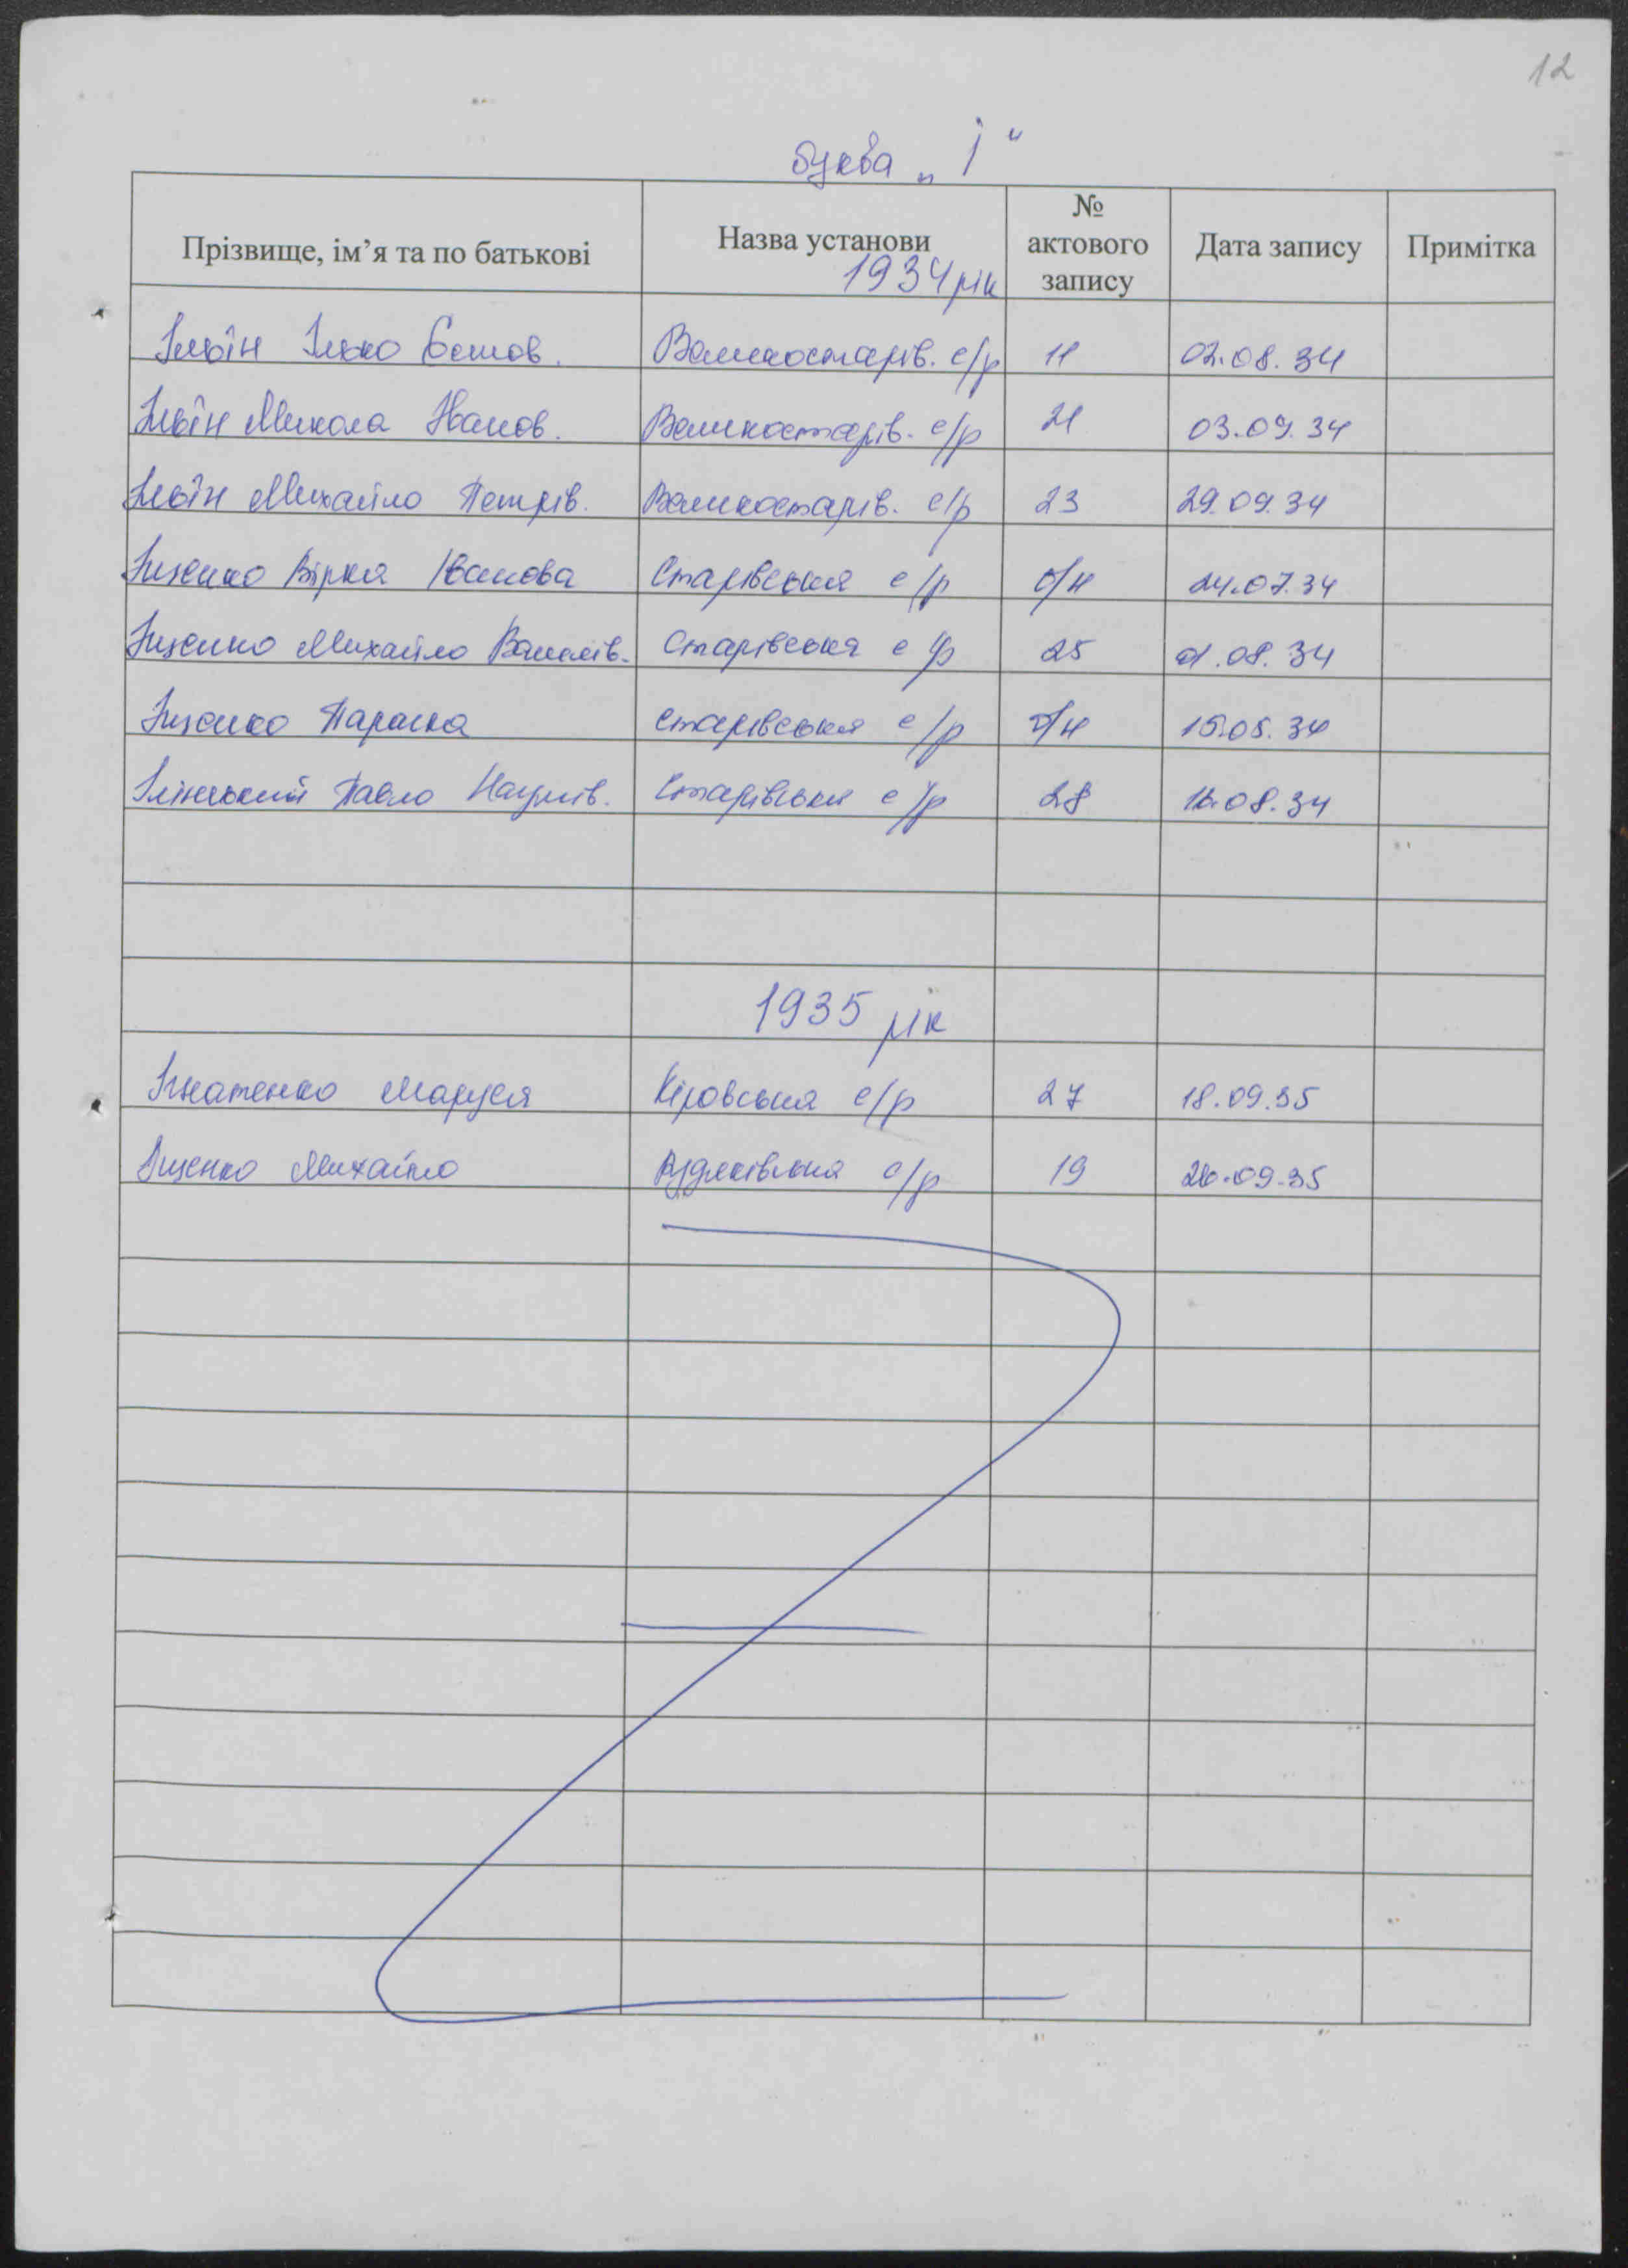 12
буква „І"
Прізвище, ім'я та по батькові Назва установи № актового запису Дата запису Примітка
1934 рік
Ільїн Ілько Великостарів. с/р 11 02.08.34
Ільїн Микола Іванов. Великостарів. с/р 21 03.09.34
Ільїн Михайло Петрів. Великостарів. с/р 23 29.09.34
Іщенко Вірка Іванова Старівська с/р б/н 24.07.34
Іщенко Михайло Старівська с/р 25 01.08.34
Іщенко Параска Старівська с/р б/н 15.05.34
Ілінський Павло Наумів. Старівська с/р 28 16.08.34
1935 рік
Ігнатенко Маруся Кіровська с/р 27 18.09.35
Іщенко Михайло Рудяківська с/р 19 26.09.35